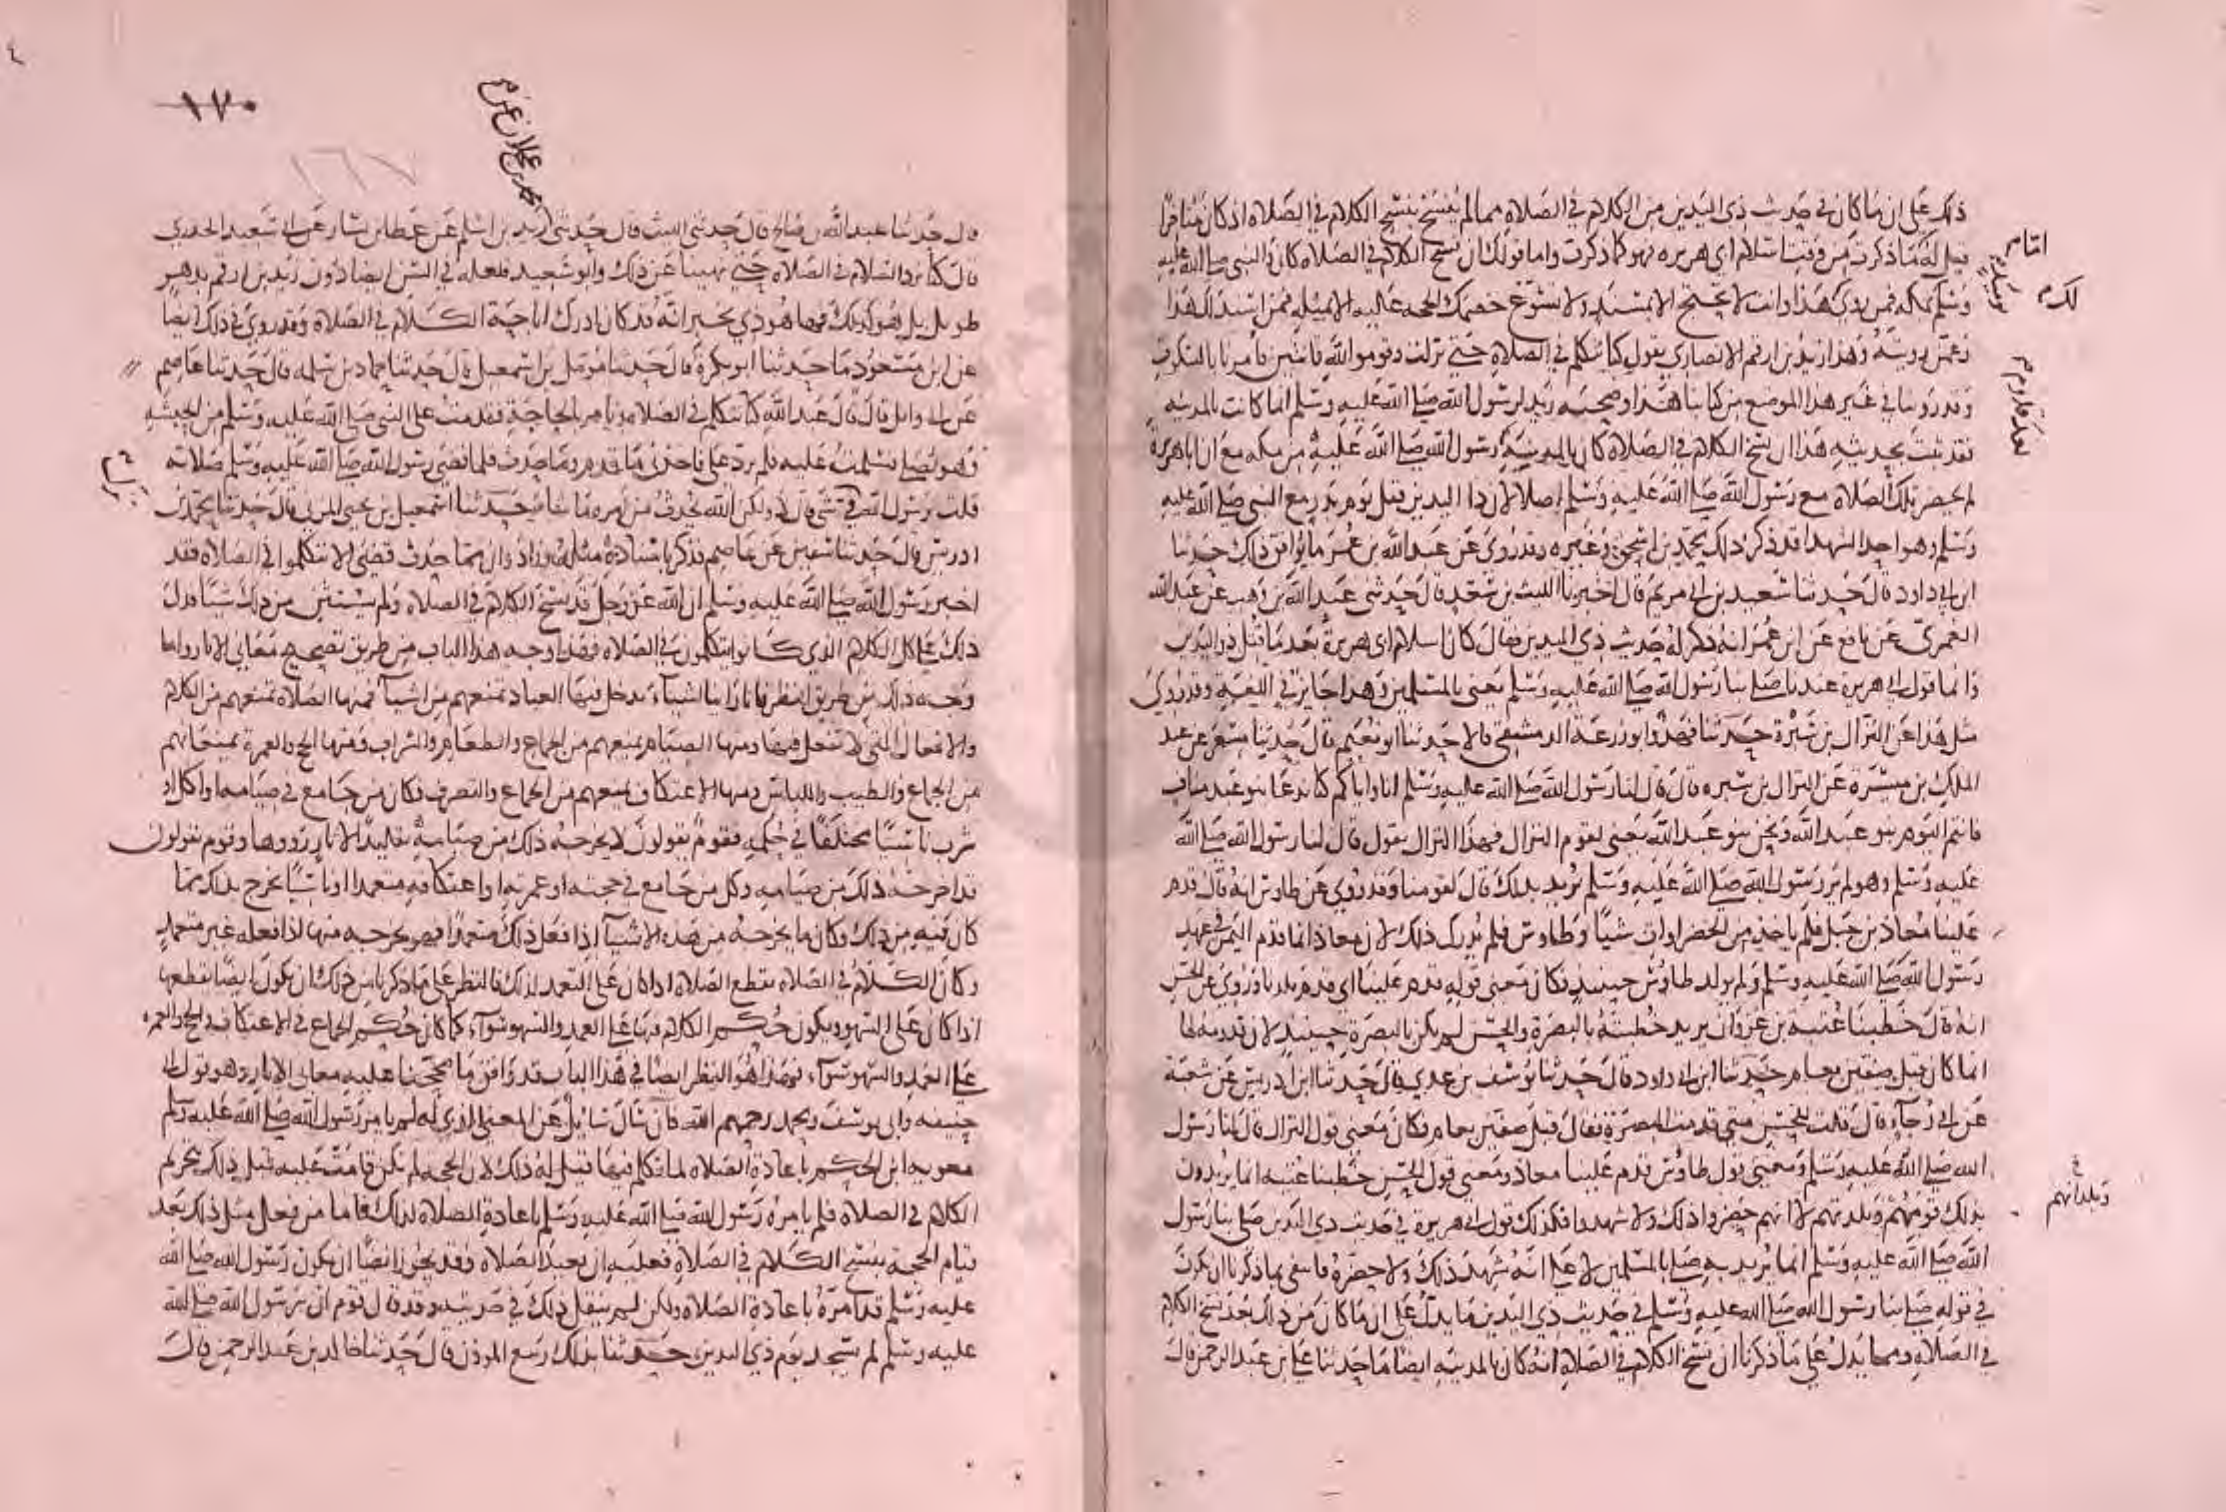 ذلك على ان ما كان في حديث ذي اليدين من الكلام في الصلاة مما لم ينسخ بنسخ الكلام في الصلاة اذ كان متاخرا
قيل له ما ذكرت من وقت اسلام ابي هريره فهو كما ذكرت واما قولك ان نسخ الكلام في الصلاه كان والنبي صلى الله عليه
وسلم بمكه فمن روى هذا وانت لا تحتج الا بمسند ولا تسوغ خصمك الحجه عليك الا بمثله فمن اسند لك هذا
وعمن رويته وهذا زيد بن ارقم الانصاري يقول كنا نتكلم في الصلاة حتى نزلت وقوموا لله قانتين فامرنا بالسكوت
وقد روينا في غير هذا الموضع من كتابنا هذا وصحبه زيد لرسول الله صلى الله عليه وسلم انما كانت بالمدينه
فقد ثبت بحديثه هذا ان نسخ الكلام في الصلاة كان بالمدينة رسول الله صلى الله عليه من مكه مع ان ابا هريرة
لم يحضر تلك الصلاة مع رسول الله صلى الله عليه وسلم اصلا لان ذا اليدين قتل يوم بدر مع النبي صلى الله عليه
وسلم وهو احد الشهدا قد ذكر ذلك محمد بن اسحق وغيره وقد روى عن عبد الله بن عمر ما يوافق ذلك حدثنا
ابن ابي داود قال حدثنا سعيد بن ابي مريم قال اخبرنا الليث بن سعد قال حدثني عبد الله بن وهب عن عبد الله
العمري عن نافع عن ابن عمر انه ذكر له حديث ذي اليدين فقال كان اسلام ابي هريرة بعد ما قتل ذو اليدين
وانما قول ابي هريرة عندنا صلى بنا رسول الله صلى الله عليه وسلم يعنى بالمسلمين وهذا جايز في اللغة وقد روي
مثل هذا عن النزال بن سبرة حدثنا فهد وابو زرعة الدمشقي قالا حدثنا ابو نعيم قال حدثنا مسعر عن عبد
الملك بن ميسرة عن النزال بن سبره قال قال لنا رسول الله صلى الله عليه وسلم انا واياكم كنا ندعا بنو عبد مناف
فانتم اليوم بنو عبد الله ونحن بنو عبد الله يعنى لقوم النزال فهذا النزال يقول قال لنا رسول الله صلى الله
عليه وسلم وهو لم ير رسول الله صلى الله عليه وسلم يريد بذلك قال لقومنا وقد روي عن طاوس انه قال قدم
علينا معاذ بن جبل فلم ياخذ من الخضراوات شيا وطاوس فلم يدرك ذلك لان معاذا انما قدم اليمن في عهد
رسول الله صلى الله عليه وسلم ولم يولد طاوس حينيذ فكان معنى قوله قدم علينا اي قدم بلدنا وروي عن الحسن
انه قال خطبنا عتبة بن غزوان يريد خطبته بالبصرة والحسن لم يكن بالبصرة حينيذ لان قدومه لها
انما كان قبل صفين بعام حدثنا ابن ابي داود قال حدثنا يوسف بن عدي قال حدثنا ابن ادريس عن شعبة
عن ابي رجاء قال قلت للحسن متى قدمت البصرة فقال قبل صفين بعام فكان معنى قول النزال قال لنا رسول
الله صلى الله عليه وسلم ومعنى قول طاوس قدم علينا معاذ ومعنى قول الحسن خطبنا عتبه انما يريدون
بذلك قومهم وبلدتهم لا انهم حضروا ذلك ولا شهدوا فكذلك قول ابي هريرة في حديث ذي اليدين صلى بنا رسول
الله صلى الله عليه وسلم انما يريد به صلى بالمسلمين لا على انه شهد ذلك ولا حضره فانتفى بما ذكرنا ان يكون
في قوله صلى بنا رسول الله صلى الله عليه وسلم في حديث ذي اليدين ما يدل على ان ما كان من ذلك بعد نسخ الكلام
في الصلاة ومما يدل على ما ذكرنا ان نسخ الكلام في الصلاة انه كان بالمدينه ايضا ما حدثنا علي بن عبد الرحمن قال
وبلدانهم
١٧٠
١٦٧
قال حدثنا عبد الله بن صالح قال حدثني الليث قال حدثني زيد بن اسلم عن عطا بن يسار عن ابي سعيد الخدري
قال كنا نرد السلام في الصلاه حتى نهينا عن ذلك وابو سعيد فلعله في السن ايضا دون زيد بن ارقم بدهر
طويل بل هو كذلك فها هو ذي يخبر انه قد كان ادرك اباحة الكلام في الصلاة وقد روي في ذلك ايضا
عن ابن مسعود ما حدثنا ابو بكرة قال حدثنا مومل بن اسمعيل قال حدثنا حماد بن سلمه قال حدثنا عاصم
عن ابي وايل قال قال عبد الله كنا نتكلم في الصلاه ونامر بالحاجة فقدمت على النبي صلى الله عليه وسلم من الحبشه
وهو يصلي فسلمت عليه فلم يرد علي فاخذني ما قدم وما حدث فلما قضى رسول الله صلى الله عليه وسلم صلاته
قلت يرسول الله في شي قال لا ولكن الله يحدث من امره ما شا حدثنا اسمعيل بن يحيى المزني قال حدثنا محمد بن
ادريس قال حدثنا سفين عن عاصم فذكر باسناده مثله وزاد وان مما حدث قضى الا تتكلموا في الصلاة فقد
اخبر رسول الله صلى الله عليه وسلم ان الله عز وجل قد نسخ الكلام في الصلاة ولم يستثن من ذلك شيئا فدل
ذلك على كل الكلام الذي كانوا يتكلمون في الصلاه فهذا وجه هذا الباب من طريق تصحيح معاني الاثار واما
وجه ذلك من طريق النظر فانا راينا اشياء يدخل فيها العباد تمنعهم من اشيآ فمنها الصلاة تمنعهم من الكلام
والافعال التي لا تفعل فيها ومنها الصيام يمنعهم من الجماع والطعام والشراب ومنها الحج والعمرة يمنعانهم
من الجماع والطيب واللباس ومنها الاعتكاف يمنعهم من الجماع والتصرف فكان من جامع في صيامه او اكل او
شرب ناسيا مختلفا في حكمه فقوم يقولون لا يخرجه ذلك من صيامه تقليدا لاثار رووها وقوم يقولون
قد اخرجه ذلك من صيامه وكل من جامع في حجته او عمرته او اعتكافه متعمدا او ناسيا يخرج بذلك مما
كان فيه من ذلك وكان ما يخرجه من هذه الاشيا اذا فعل ذلك متعمدا فهو يخرجه منها اذا فعله غير متعمد
وكان الكلام في الصلاه يقطع الصلاه اذا كان على التعمد لذلك فالنظر على ما ذكرنا من ذلك ان يكون ايضا يقطعها
اذا كان على السهو ويكون حكم الكلام فيها على العمد والسهو سوآء كما كان حكم الجماع في الاعتكاف والحج والعمره
على العمد والسهو سوآء فهذا هو النظر ايضا في هذا الباب قد وافق ما صححنا عليه معاني الاثار وهو قول ابي
حنيفه وابي يوسف ومحمد رحمهم الله فان سال سايل عن المعنى الذي له لم يامر رسول الله صلى الله عليه وسلم
معويه ابن الحكم باعادة الصلاه لما تكلم فيها قيل له ذلك لان الحجه لم تكن قامت عليه قبل ذلك بتحريم
الكلام في الصلاه فلم يامره رسول الله صلى الله عليه وسلم باعادة الصلاه لذلك فاما من فعل مثل ذلك بعد
قيام الحجة بنسخ الكلام في الصلاة فعليه ان يعيد الصلاه وقد يجوز ايضا ان يكون رسول الله صلى الله
عليه وسلم قد امره باعادة الصلاه ولكن لم ينقل ذلك في حديثه وقد قال قوم ان رسول الله صلى الله
عليه وسلم لم يسجد يوم ذي اليدين حدثنا بذلك ربيع الموذن قال حدثنا خالد بن عبد الرحمن قال